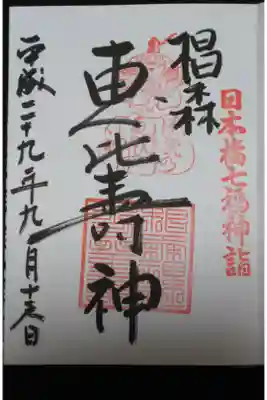 日本橋七福神詣
椙森
恵比寿神
平成二十九年九月十日